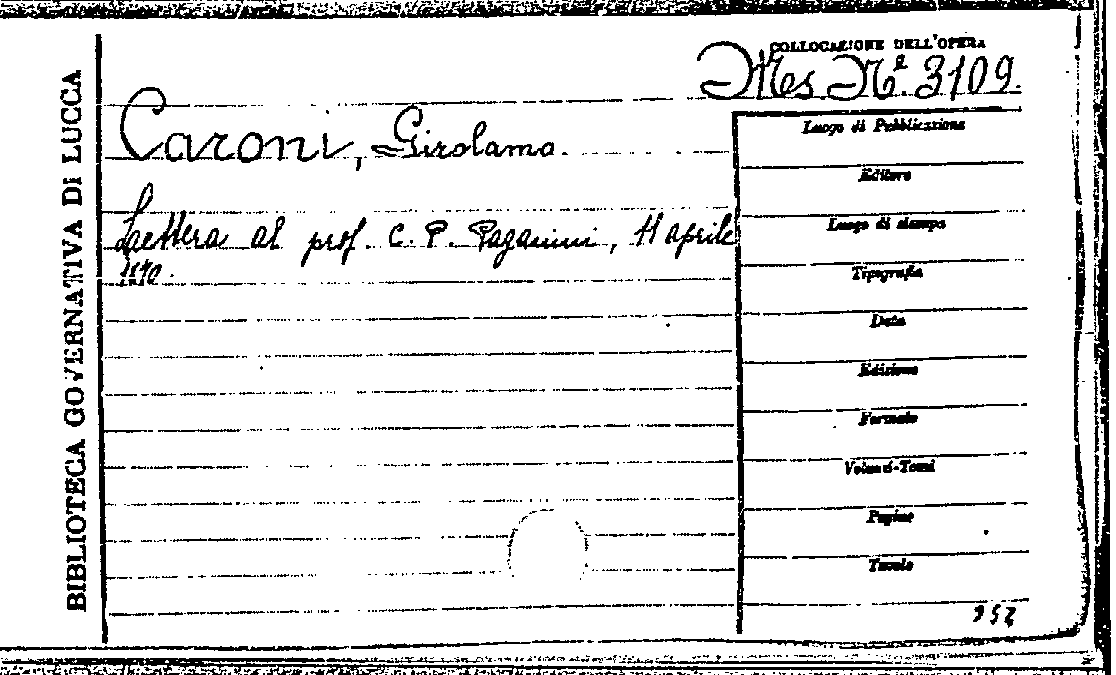 BIBLIOTECA GOVERNATIVA DI LUCCA
COLLOCAZIONE DELL'OPERA
Mss. Nº 3109.
Caroni, Girolamo.
Lettera al prof. C. P. Paganini, 11 aprile
Luogo di Pubblicazione
Editore
Luogo di stampa
Tipografia
Data
Edizione
Formato
Volumi-Tomi
Pagine
Tavole